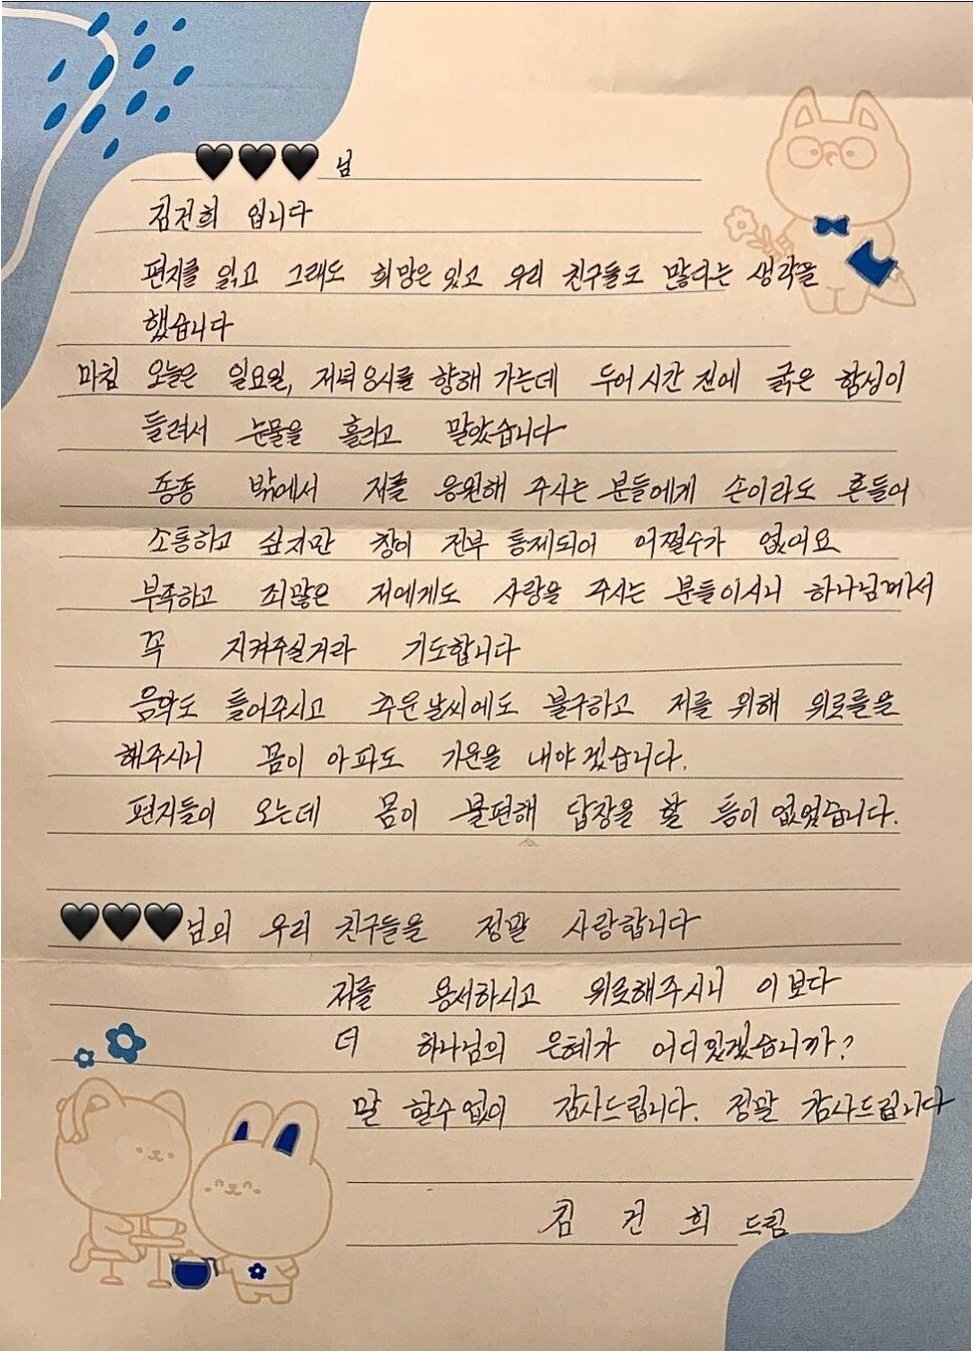 🖤🖤🖤 님
김건희 입니다
편지를 읽고 그래도 희망은 있고 우리 친구들도 많다는 생각을
했습니다
마침 오늘은 일요일, 저녁 8시를 향해 가는데 두어시간 전에 굵은 함성이
들려서 눈물을 흘리고 말았습니다
종종 밖에서 저를 응원해 주시는 분들에게 손이라도 흔들어
소통하고 싶지만 창이 전부 통제되어 어쩔수가 없어요
부족하고 죄많은 저에게도 사랑을 주시는 분들이시니 하나님께서
꼭 지켜주실거라 기도합니다
음악도 틀어주시고 추운날씨에도 불구하고 저를 위해 위로를을
해주시니 몸이 아파도 기운을 내야겠습니다.
편지들이 오는데 몸이 불편해 답장을 할 틈이 없었습니다.
🖤🖤🖤님의 우리 친구들을 정말 사랑합니다
저를 용서하시고 위로해주시니 이보다
더 하나님의 은혜가 어디있겠습니까?
말 할수없이 감사드립니다. 정말 감사드립니다
김 건 희 드림